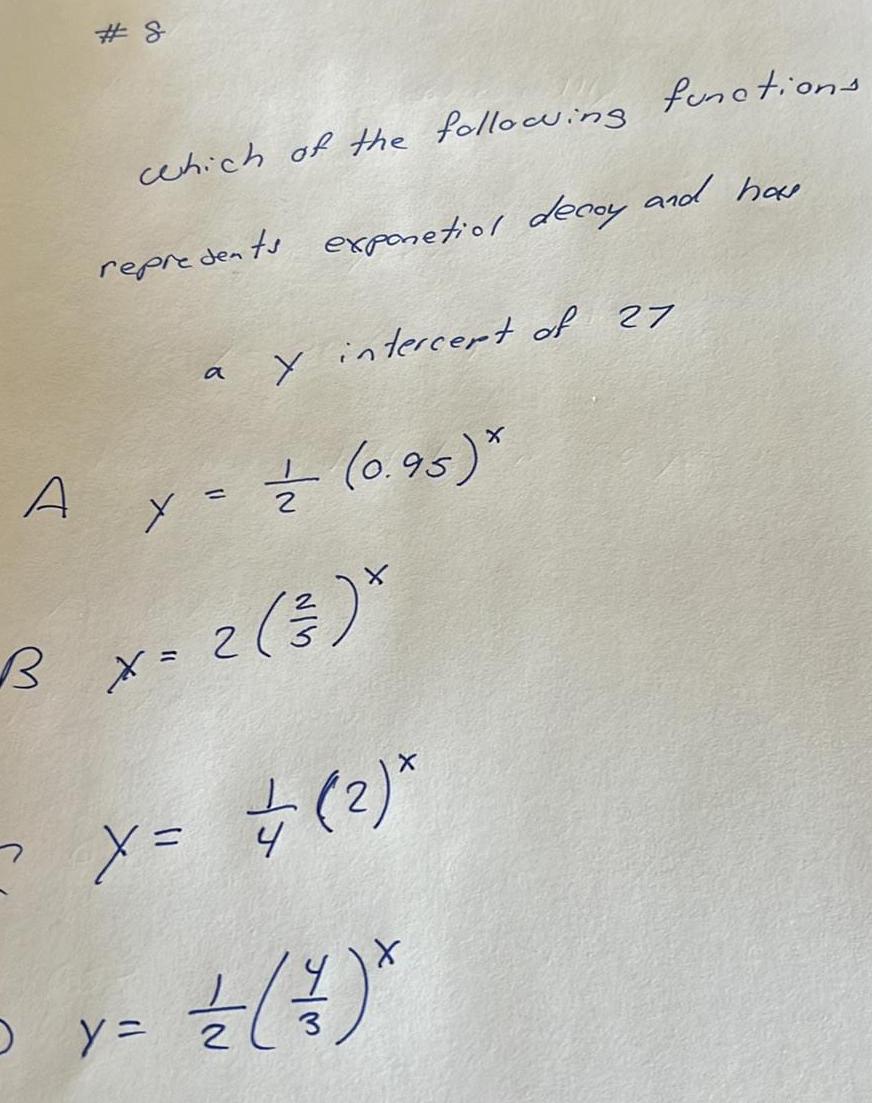 # 8
which of the following functions
represents exponetial decay and has
a y intercept of 27
A y = 1/2 (0.95)^x
B y = 2 (2/5)^x
y = 1/4 (2)^x
y = 1/2 (4/3)^x